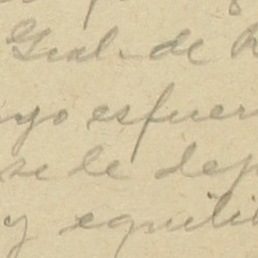 Gral. de
yo esfuer
se le dep
y equili